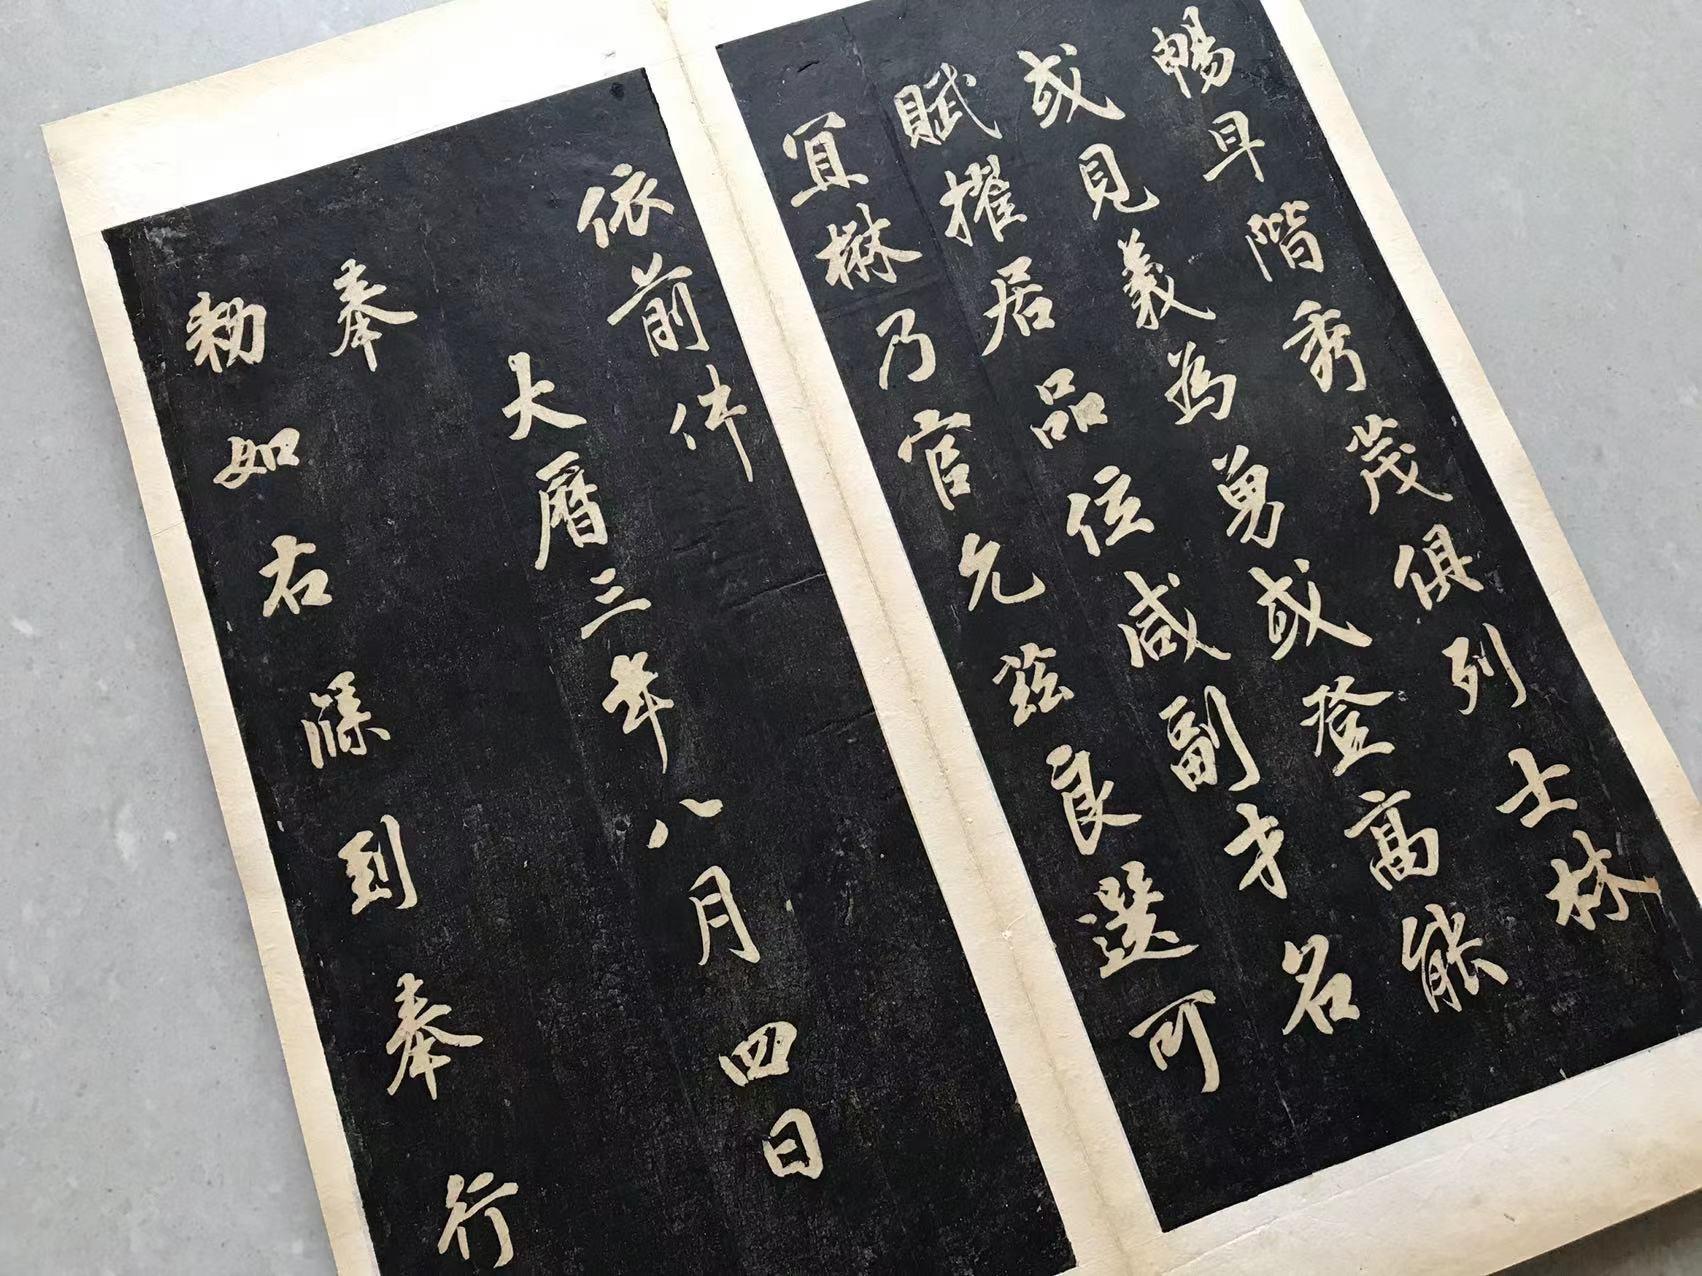 暢早階秀茂俱列士林
或見義為勇或登高能
賦擢居品位咸副才名
宜楙乃官允茲良選可
依前件
大曆三年八月四日
奉
勑如右牒到奉行